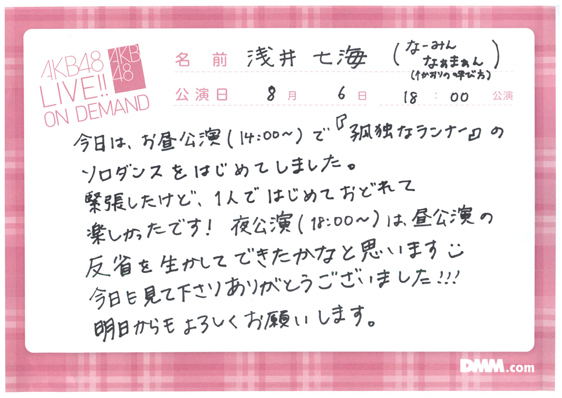 AKB48
LIVE!!
ON DEMAND
AKB
48
名前 浅井 七海 (なーみん
なぁまぁん
公演日 8月 6日 18:00 公演
今日は、お昼公演(14:00～)で『孤独なランナー』の
ソロダンスをはじめてしました。
緊張したけど、1人ではじめておどれて
楽しかったです! 夜公演(18:00～)は、昼公演の
反省を生かしてできたかなと思います
今日も見て下さりありがとうございました!!!
明日からもよろしくお願いします。
DMM.com